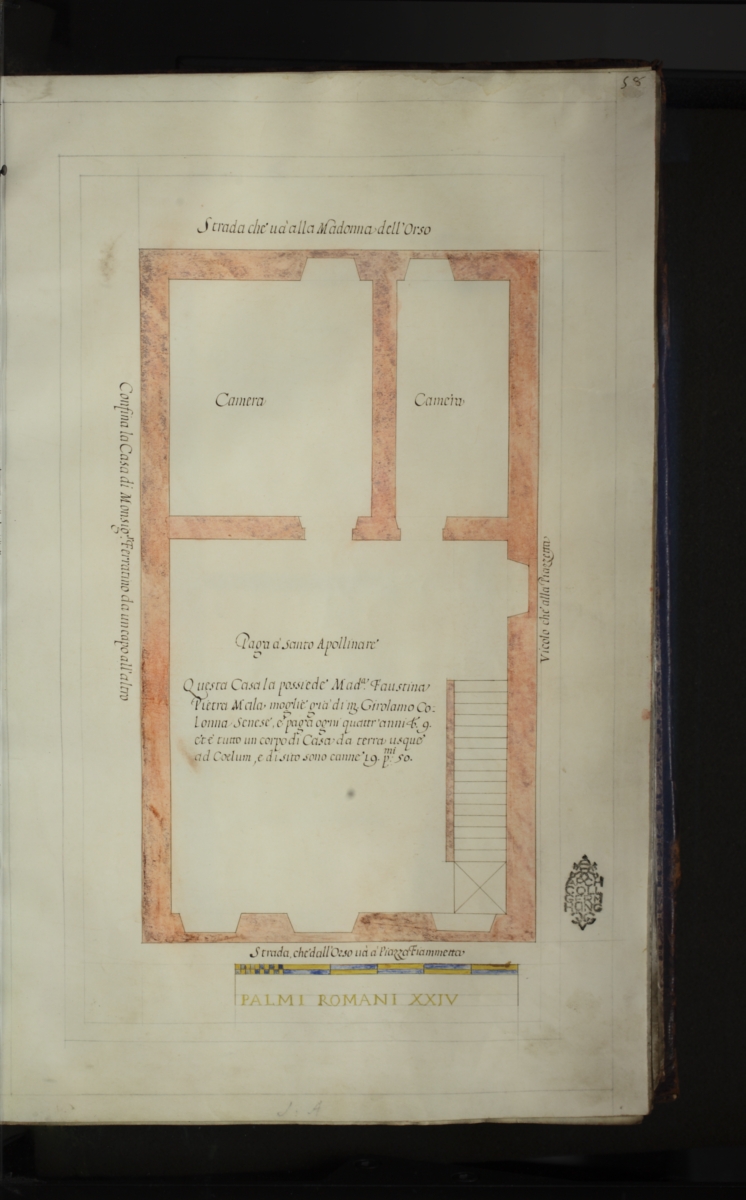 58
Strada che uà alla Madonna dell'Orso
Confina la Casa di Monsig.re Ferratino da un capo all'altro
Camera
Camera
Vicolo ch'è alla Piazzetta
Paga à Santo Apollinare
Questa Casa la possiede Mad.a Faustina
Pietra Mala moglie già di m. Girolamo Co:
lonna Senese, e paga ogni quattr'anni 9.
et è tutto un corpo di Casa da terra usque
ad Coelum, e di sito sono canne 19. p.mi 50.
Strada, che dall'Orso uà à Piazza Fiammetta
PALMI ROMANI XXIV